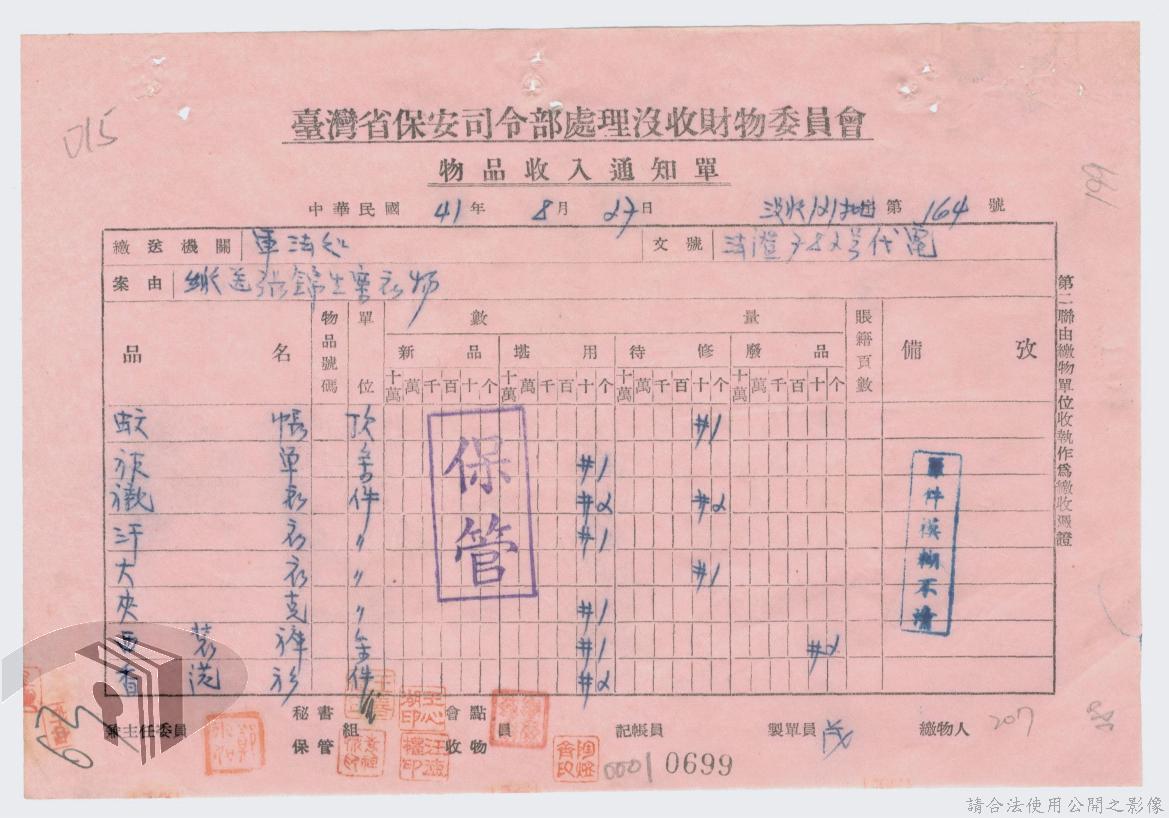 015
臺灣省保安司令部處理沒收財物委員會
物品收入通知單
中華民國 41年 8月 27日 第 164 號
169
繳送機關 軍法處 文號 法澄字 號代電
案由 繳送張錦生案衣物
品名 物品號碼 單位 數量 賬籍頁數 備攷
新品 堪用 待修 廢品
十萬 萬 千 百 十 个 十萬 萬 千 百 十 个 十萬 萬 千 百 十 个 十萬 萬 千 百 十 个
蚊帳 頂 #1
單 条 #1
衬衣 件 #2 #2
汗衣 〃 #1
大衣 〃 #1
夾克 〃 #1
西裝褲 条 #1 #2
香港衫 件 #2
保管
原件模糊不清
第二聯由繳物單位收執作為繳收憑證
兼主任委員 秘書 保管組 會點收物員 記帳員 製單員 茂 繳物人
63
207
0001 0699
請合法使用公開之影像